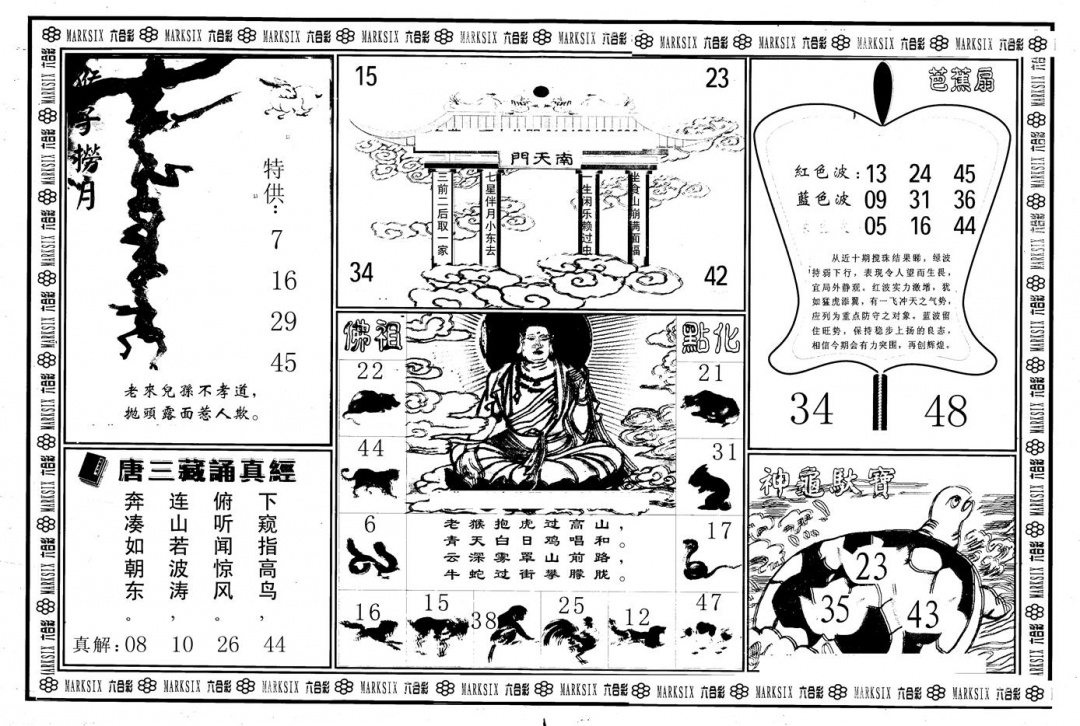 MARKSIX 六合彩 MARKSIX 六合彩 MARKSIX 六合彩 MARKSIX 六合彩 MARKSIX 六合彩 MARKSIX 六合彩 MARKSIX 六合彩 MARKSIX 六合彩 MARKSIX 六合彩 MARKSIX 六合彩
猴子撈月
特供:
7
16
29
45
老來兒孫不孝道,
拋頭露面惹人欺。
15
23
南天門
三前二后取一家
七星伴月小东去
一生闲乐赖过虫
坐食山崩满面福
34
42
芭蕉扇
紅色波:13 24 45
藍色波 09 31 36
05 16 44
从近十期搅珠结果睇,绿波
持弱下行,表现令人望而生畏,
宜局外静观。红波实力激增,犹
如猛虎添翼,有一飞冲天之气势,
应列为重点防守之对象。蓝波留
住旺势,保持稳步上扬的良态,
相信今期会有力突围,再创辉煌。
34 48
佛祖
點化
22
21
44
31
6
17
老猴抱虎过高山,
青天白日鸡唱和。
云深雾罩山前路,
牛蛇过街攀朦胧。
16
15
38
25
12
47
唐三藏誦真經
下窥指高鸟,
俯听闻惊风。
连山若波涛,
奔凑如朝东。
真解:08 10 26 44
神龜馱寶
23
35
43
MARKSIX 六合彩 MARKSIX 六合彩 MARKSIX 六合彩 MARKSIX 六合彩 MARKSIX 六合彩 MARKSIX 六合彩 MARKSIX 六合彩 MARKSIX 六合彩 MARKSIX 六合彩 MARKSIX 六合彩